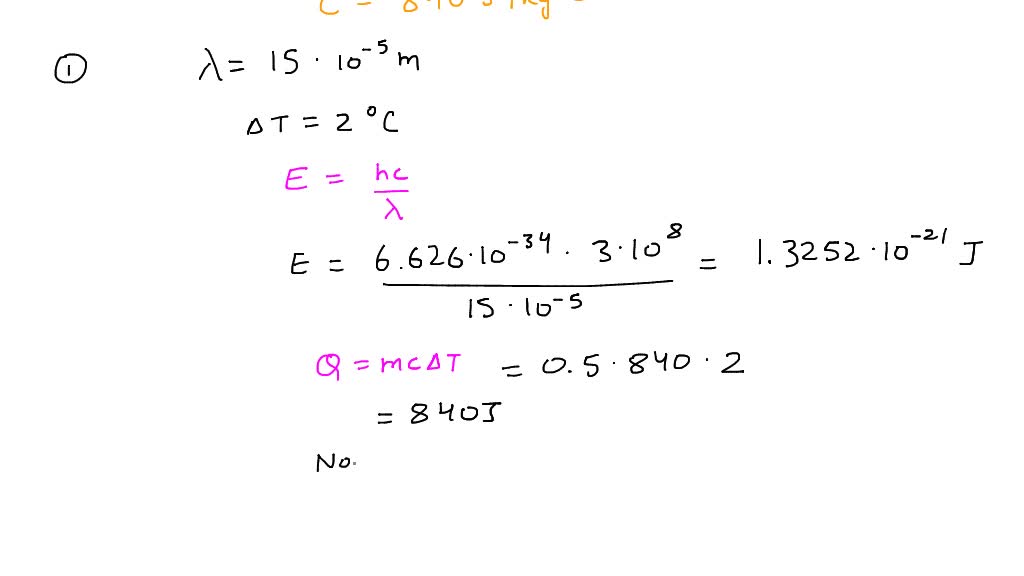 C = 840 J/kg
① λ = 15 · 10⁻⁵ m
ΔT = 2 °C
E = hc/λ
E = 6.626·10⁻³⁴ · 3·10⁸ / 15 · 10⁻⁵ = 1.3252 · 10⁻²¹ J
Q = mcΔT = 0.5 · 840 · 2
= 840J
No.